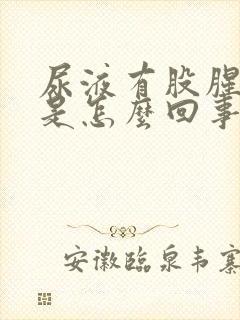 尿液有股腥
是怎麼回事
安徽臨泉韦寨